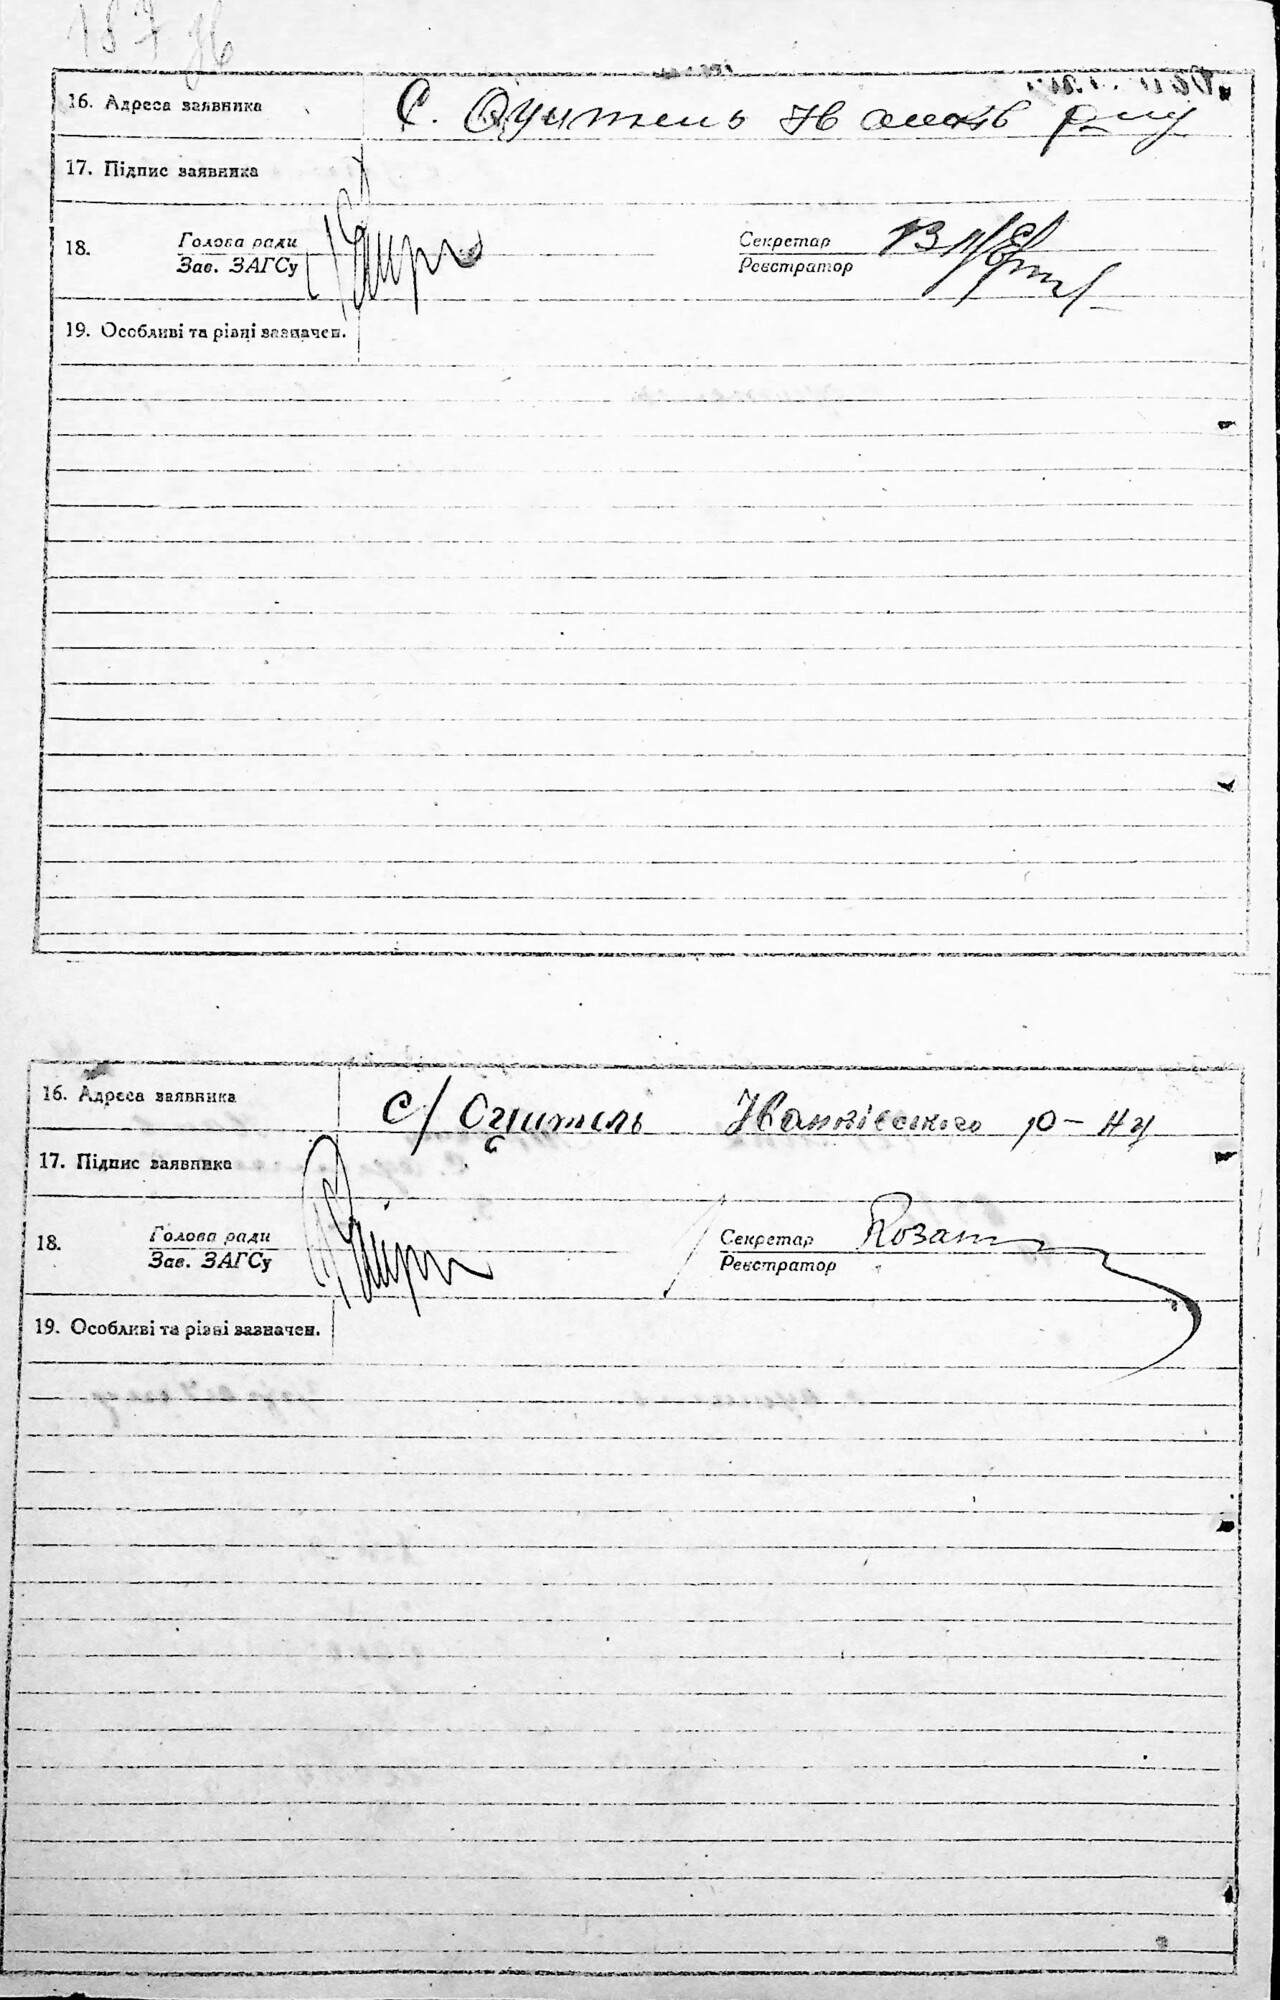 187
16. Адреса заявника С. Оцитель
17. Підпис заявника
18. Голова ради Секретар
Зав. ЗАГСу Реєстратор
19. Особливі та різні зазначен.
16. Адреса заявника с/ Оцитель Іванківського р-ну
17. Підпис заявника
18. Голова ради Секретар
Зав. ЗАГСу Реєстратор
19. Особливі та різні зазначен.